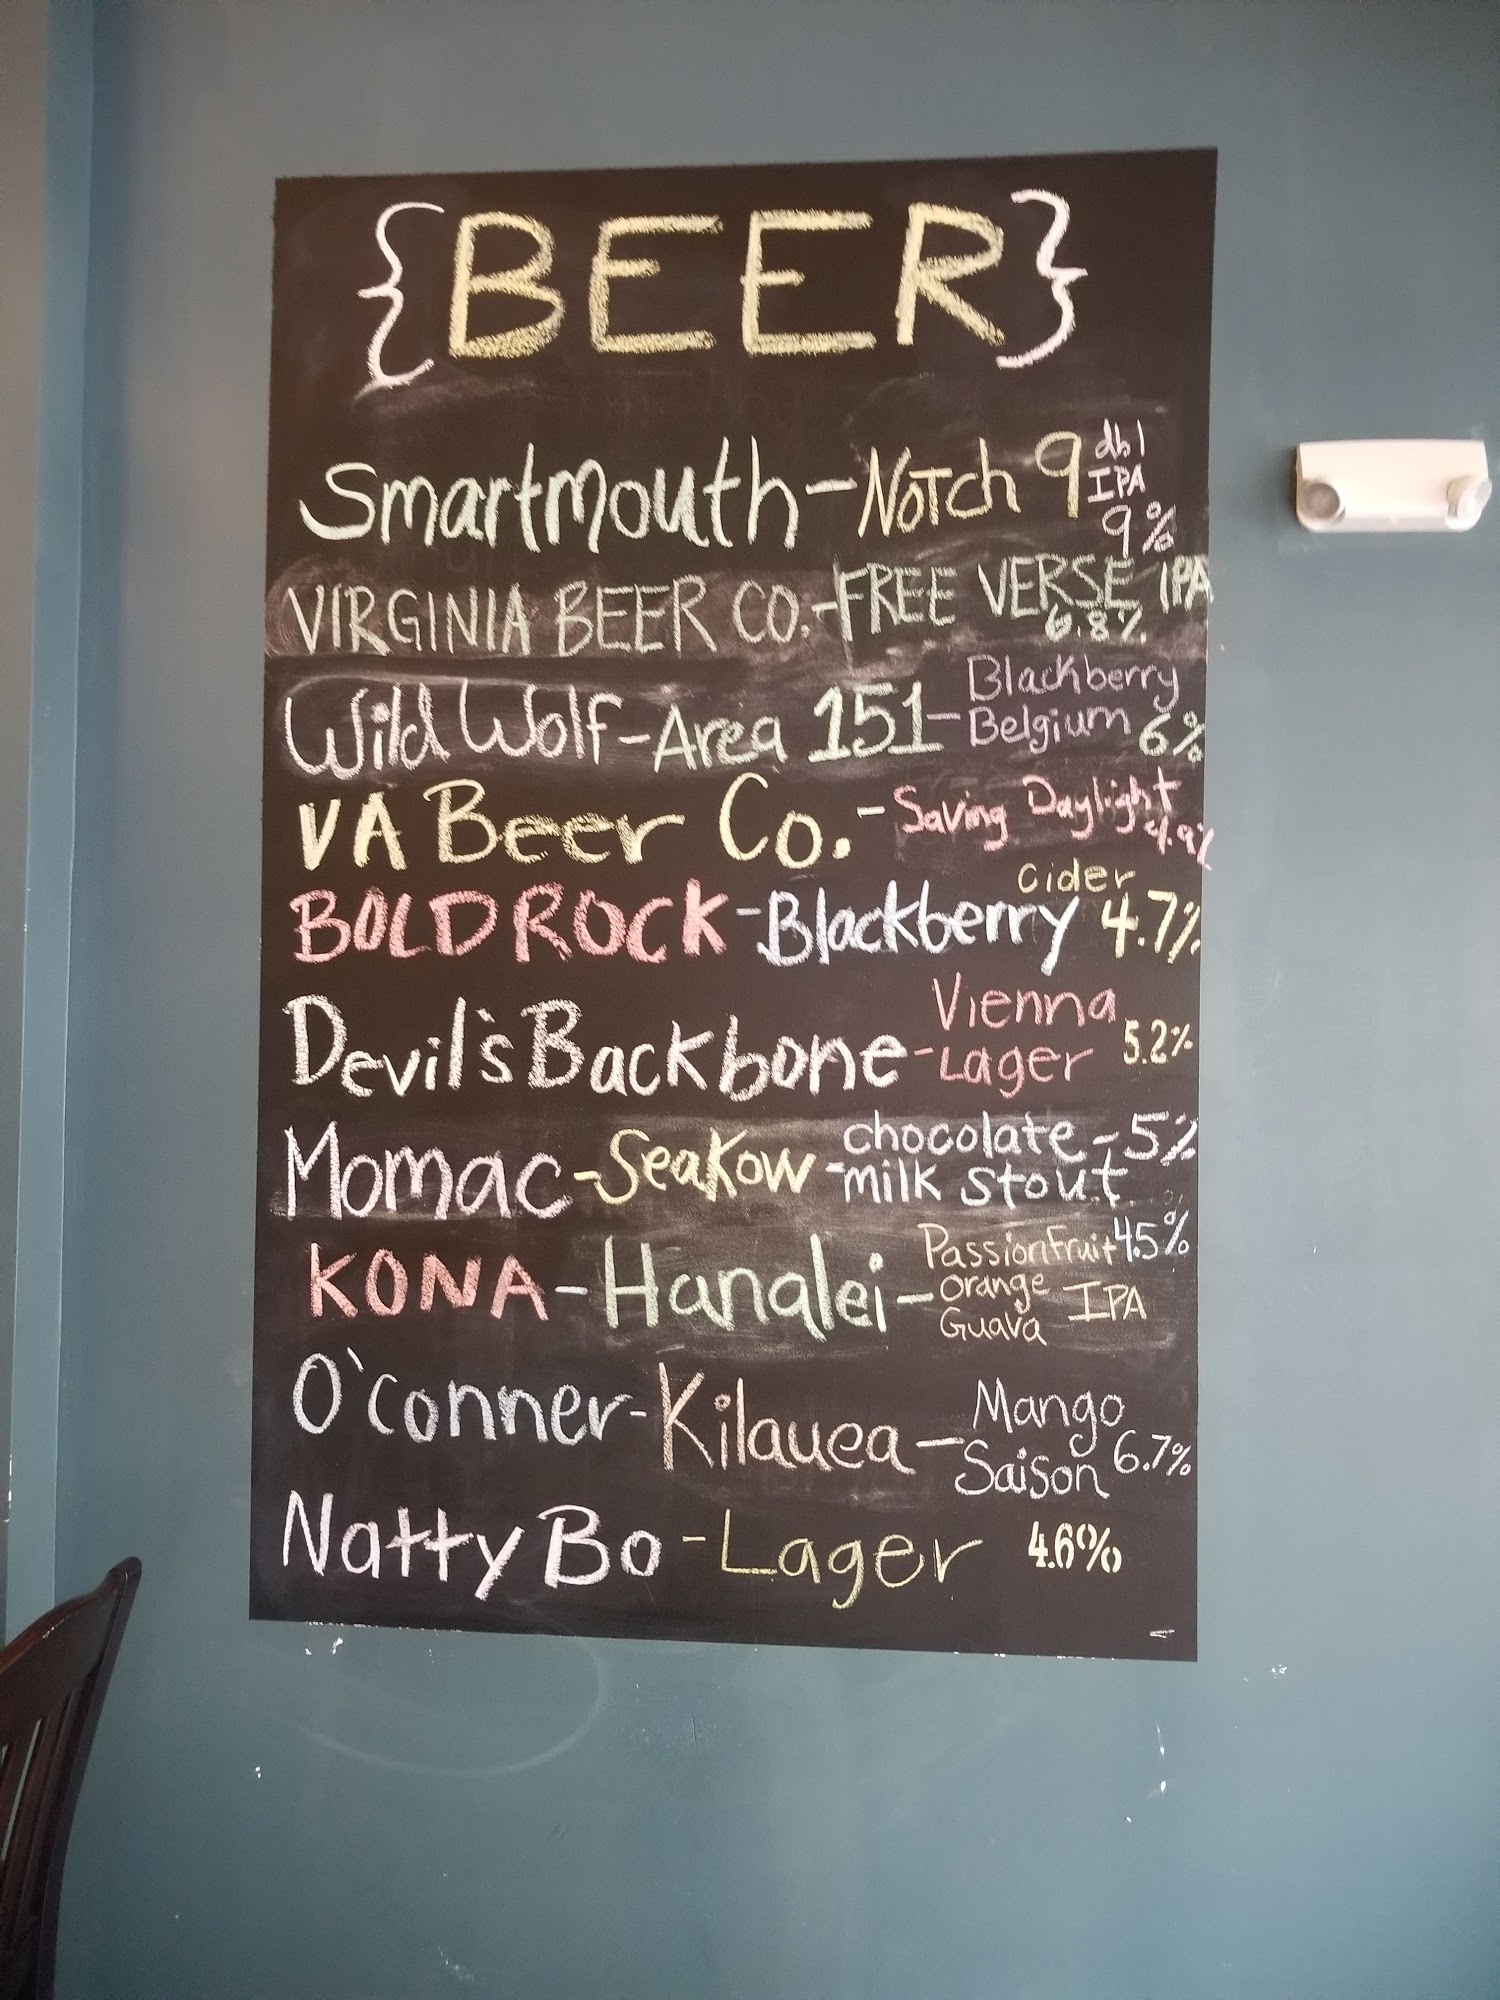 {BEER}
Smartmouth-Notch 9 dbl IPA 9%
VIRGINIA BEER CO.-FREE VERSE IPA 6.8%
Wild Wolf-Area 151-Blackberry Belgium 6%
VA Beer Co.-Saving Daylight 4.9%
BOLD ROCK-Blackberry Cider 4.7%
Devil's Backbone-Vienna Lager 5.2%
Momac-SeaKow-chocolate milk stout-5%
KONA-Hanalei-Passionfruit Orange Guava IPA 4.5%
O'conner-Kilauea-Mango Saison 6.7%
Natty Bo-Lager 4.6%